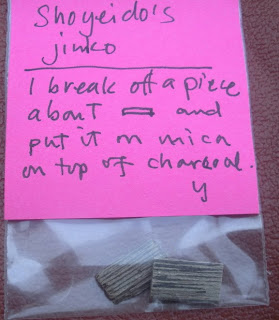 Shoyeido's
jinko
I break off a piece
about ▭ and
put it on mica
on top of charcoal.
y